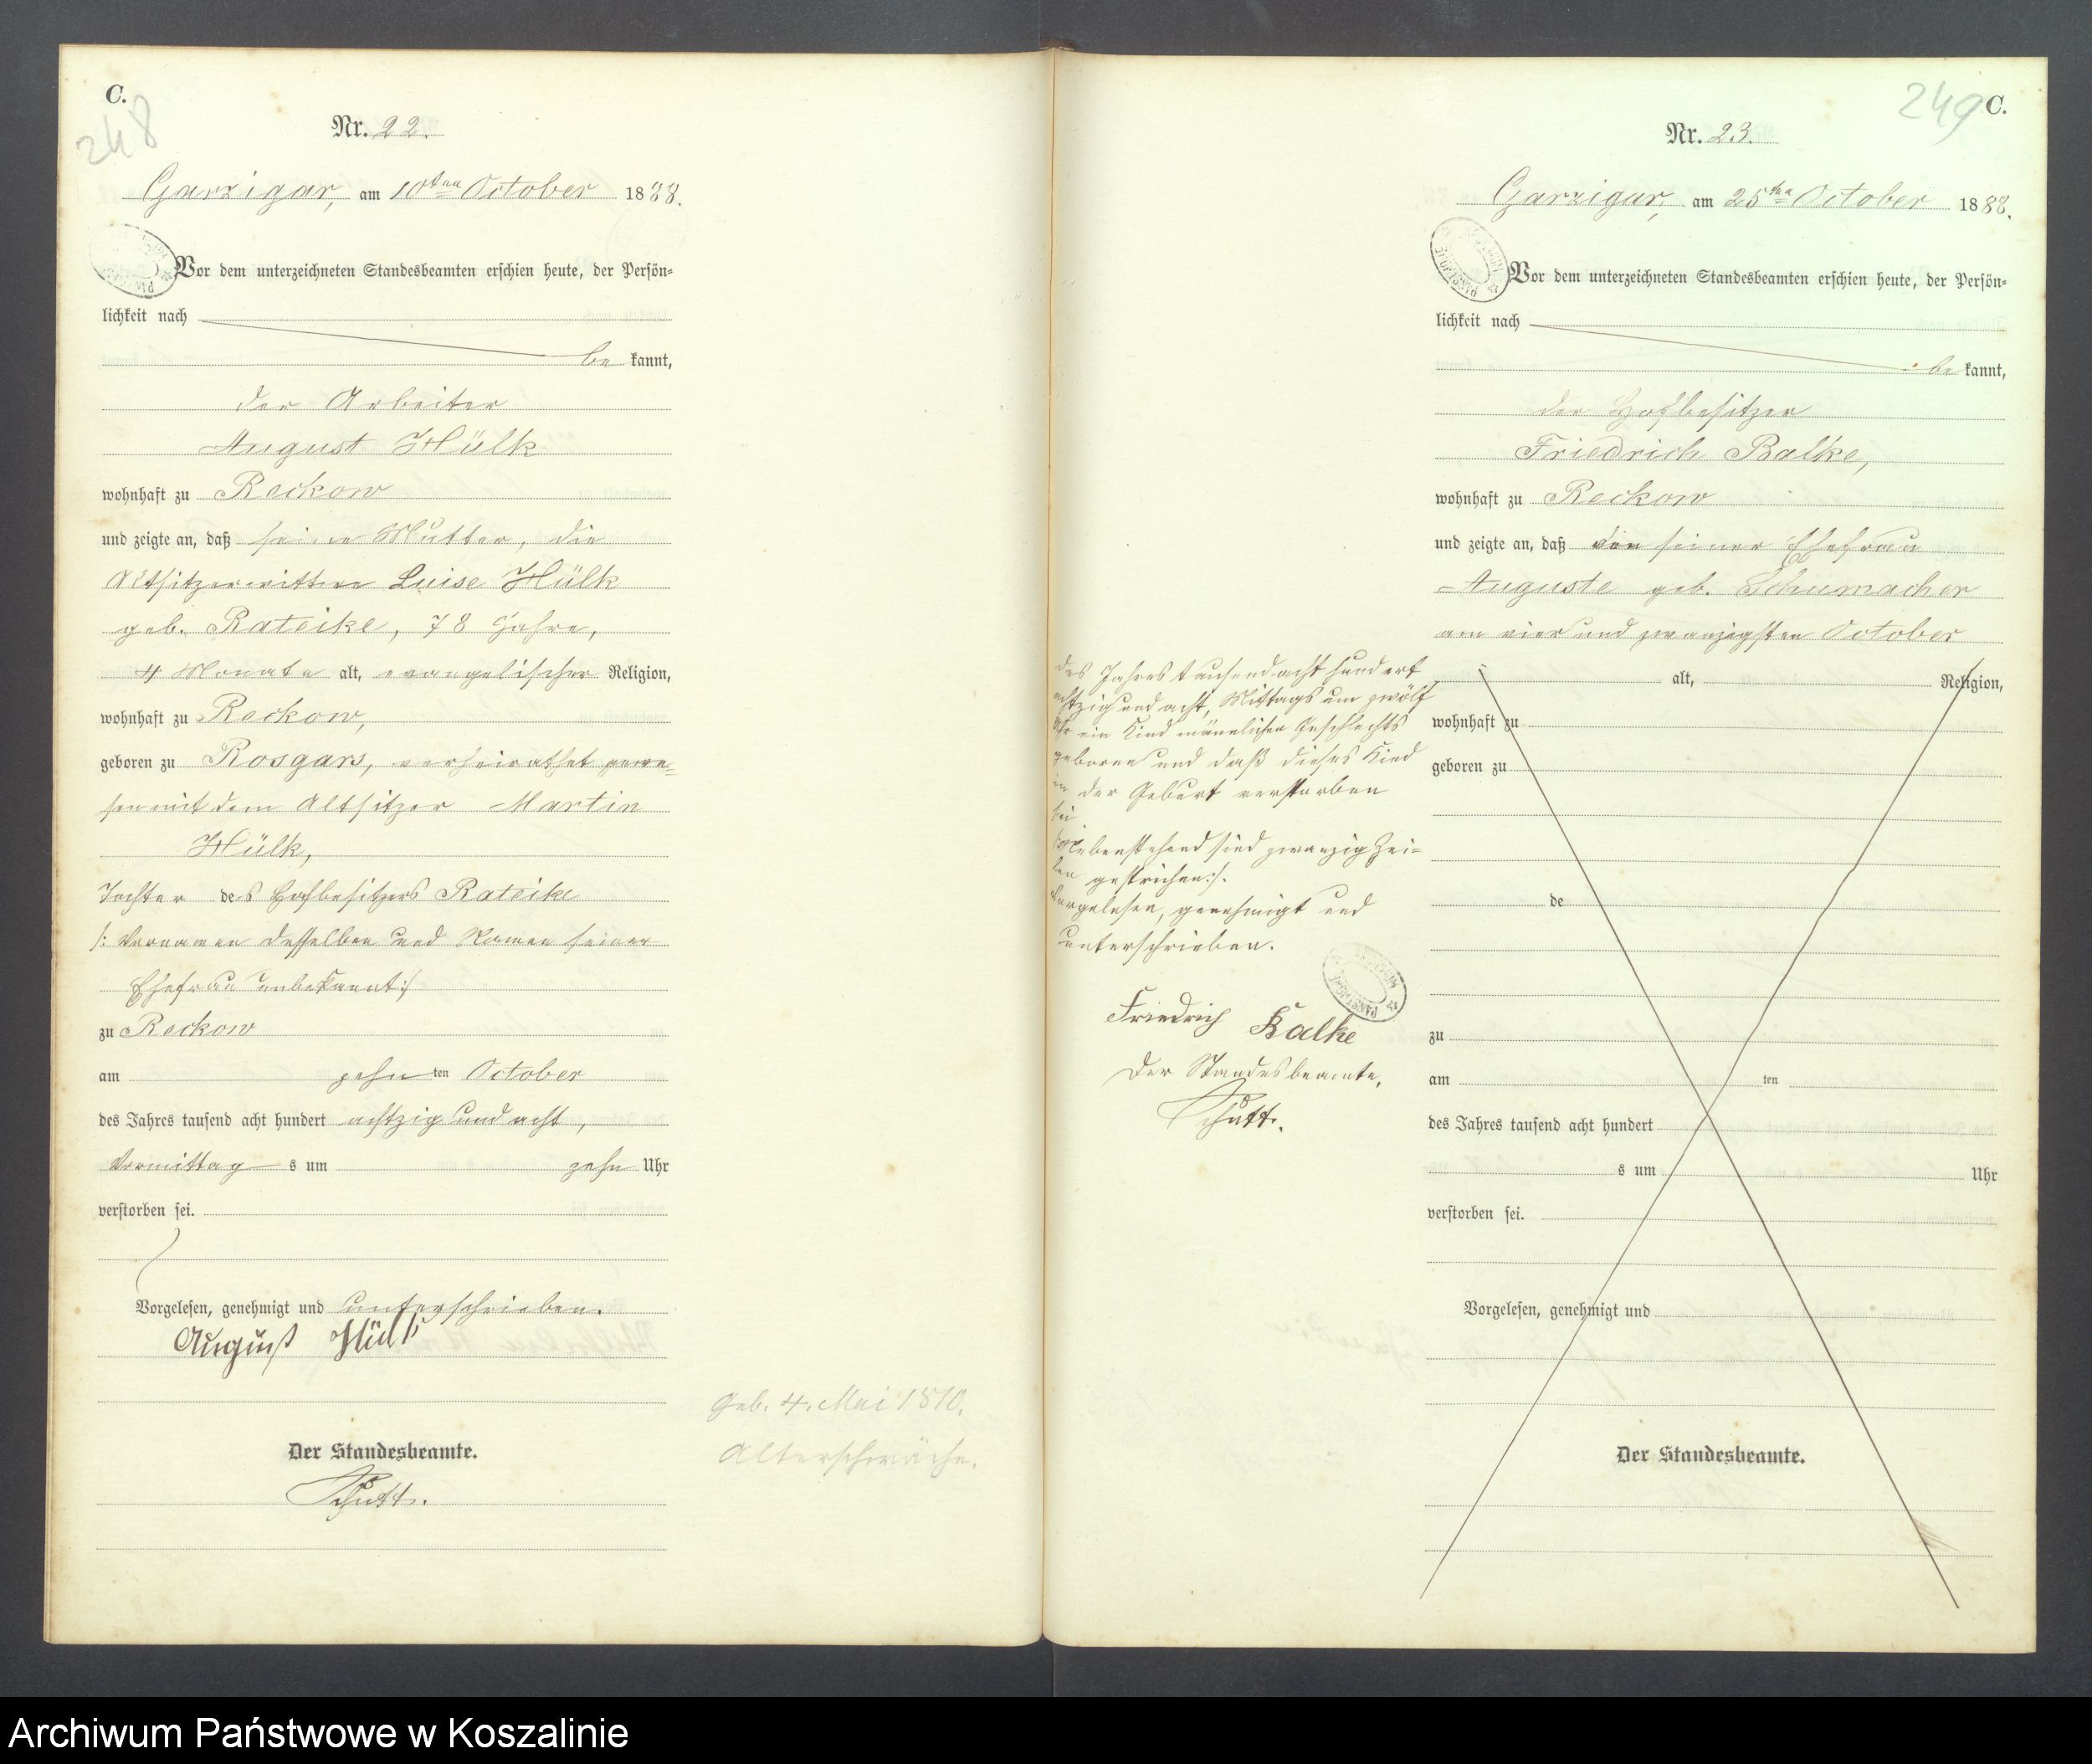 C.
248
Nr. 22.
Garzigar, am 10ten October 1888.
Vor dem unterzeichneten Standesbeamten erschien heute, der Persön=
lichkeit nach
be kannt,
der Arbeiter
August Hülk
wohnhaft zu Reckow
und zeigte an, daß seine Mutter, die
Altsitzerwittwe Luise Hülk
geb. Rateike, 78 Jahre,
4 Monate alt, evangelischer Religion,
wohnhaft zu Reckow,
geboren zu Rosgars, verheirathet gewe=
sen mit dem Altsitzer Martin
Hülk,
Tochter des Hofbesitzers Rateike
/: Vornamen desselben und Namen seiner
Ehefrau unbekannt :/
zu Reckow
am zehn ten October
des Jahres tausend acht hundert achtzig und acht,
Vormittag s um zehn Uhr
verstorben sei.
Vorgelesen, genehmigt und unterschrieben.
August Hülk
Der Standesbeamte.
Schütt.
Geb. 4. Mai 1810.
Altersschwäche.
249 C.
Nr. 23.
Garzigar, am 25ten October 1888.
Vor dem unterzeichneten Standesbeamten erschien heute, der Persön=
lichkeit nach
be kannt,
der Hofbesitzer
Friedrich Balke,
wohnhaft zu Reckow
und zeigte an, daß von seiner Ehefrau
Auguste geb. Schumacher
am vier und zwanzigsten October
des Jahres tausend acht hundert
achtzig und acht, Mittags um zwölf
Uhr ein Kind männlichen Geschlechts
geboren und daß dieses Kind
in der Geburt verstorben
sei
/: Nebenstehend sind zwanzig Zei=
len gestrichen :/.
Vorgelesen, genehmigt und
unterschrieben.
Friedrich Balke
Der Standesbeamte.
Schütt.
alt, Religion,
wohnhaft zu
geboren zu
de
zu
am ten
des Jahres tausend acht hundert
s um Uhr
verstorben sei.
Vorgelesen, genehmigt und
Der Standesbeamte.
Archiwum Państwowe w Koszalinie